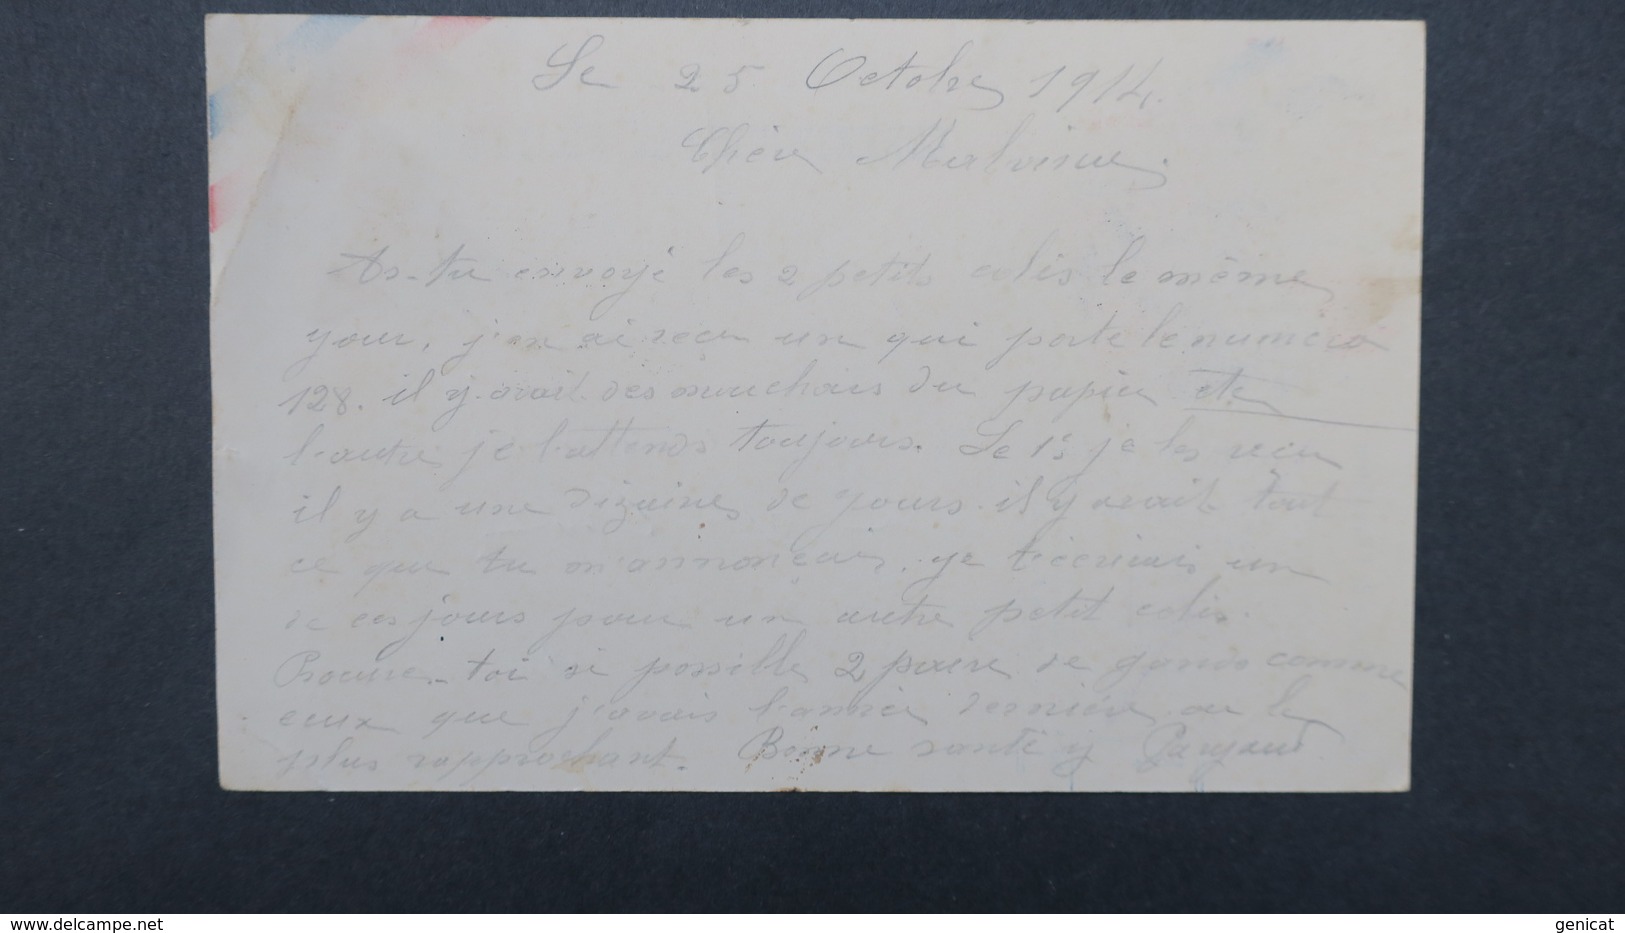 Le 25 Octobre 1914.
Chère Malvina,
As-tu envoyé les 2 petits colis le même
jour, j'en ai reçu un qui porte le numéro
128. il y avait des mouchoirs du papier etc
l'autre je l'attends toujours. Le 1er je les reçu
il y a une dizaine de jours. il y avait tout
ce que tu m'annonçais, je t'écrirais un
de ces jours pour un autre petit colis.
Procure-toi si possible 2 paire de gands comme
ceux que j'avais l'année dernière ou le
plus rapprochant. Bonne santé
genicat